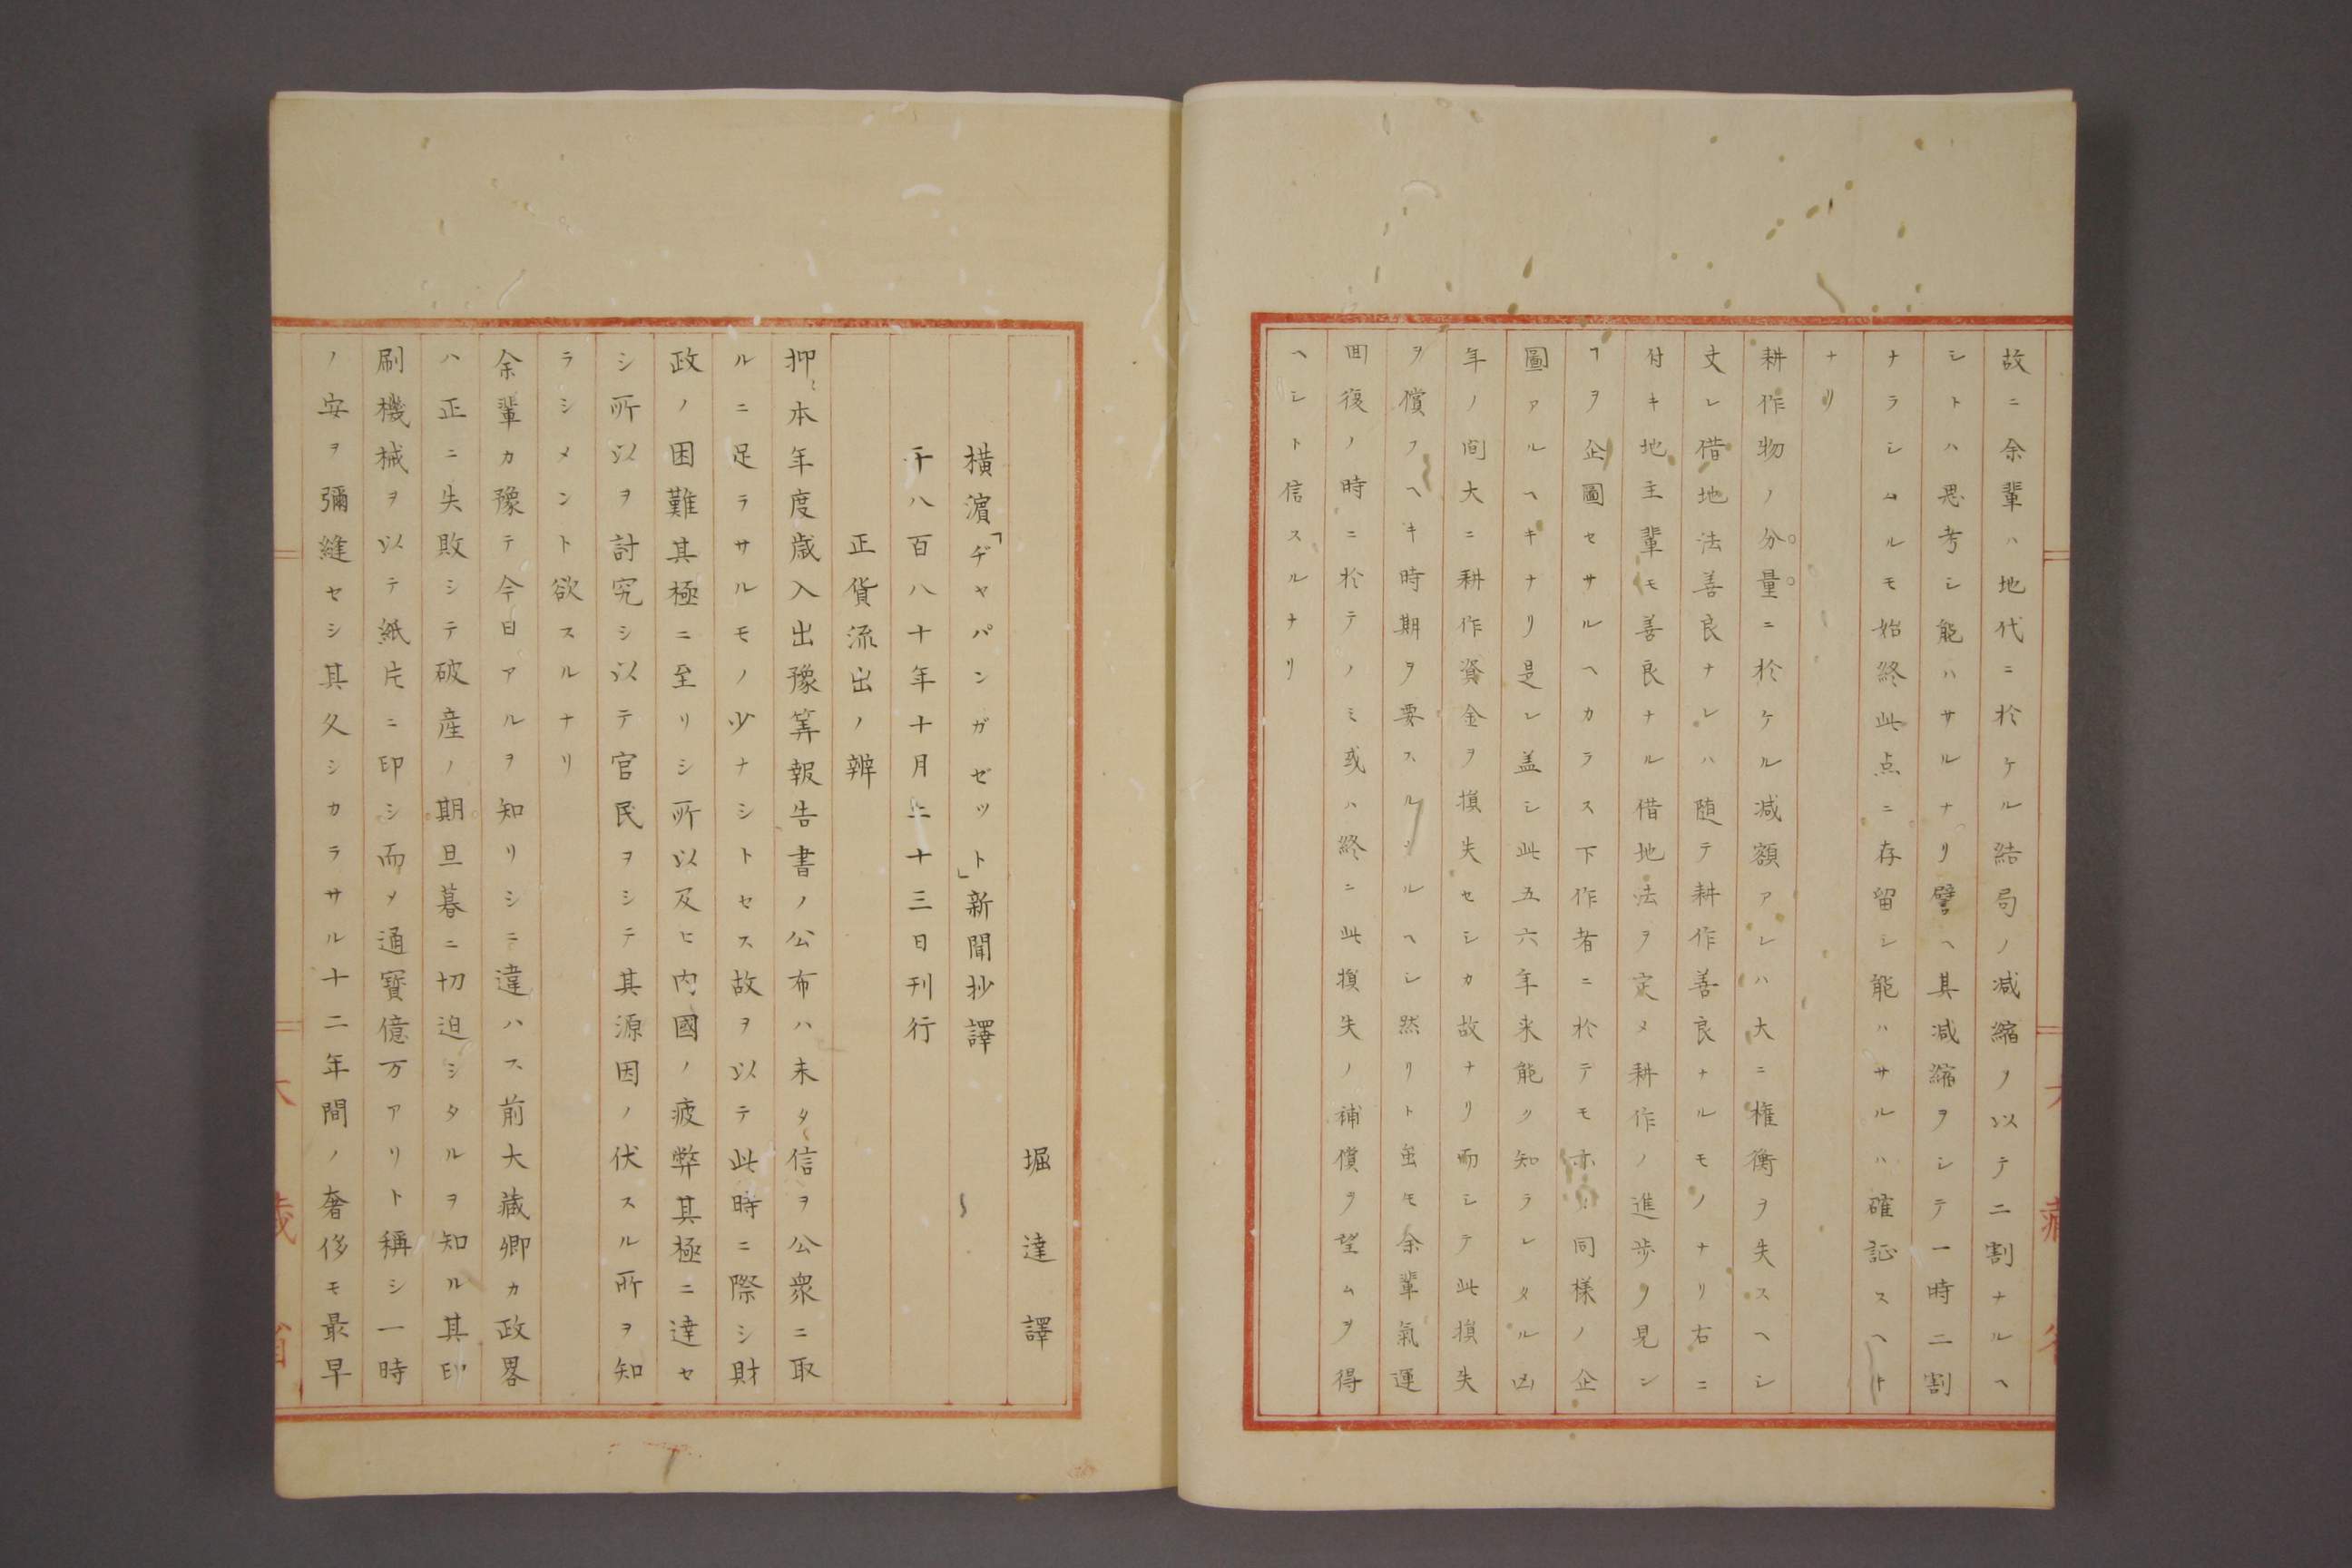 故ニ余輩ハ地代ニ於ケル結局ノ減縮ヲ以テ二割ナルヘ
シトハ思考シ能ハサルナリ譬ヘ其減縮ヲシテ一時二割
ナラシムルモ始終此点ニ存留シ能ハサルハ確証スヘキ
ナリ
耕作物ノ分量ニ於ケル減額アレハ大ニ権衡ヲ失スヘシ
丈レ借地法善良ナレハ随テ耕作善良ナルモノナリ右ニ
付キ地主輩モ善良ナル借地法ヲ定メ耕作ノ進歩ヲ見ン
ヿヲ企圖セサルヘカラス下作者ニ於テモ亦同様ノ企
圖アルヘキナリ是レ盖シ此五六年来能ク知ラレタル凶
年ノ間大ニ耕作資金ヲ損失セシカ故ナリ而シテ此損失
ヲ償フヘキ時期ヲ要スルナルヘシ然リト虽モ余輩氣運
回復ノ時ニ於テノミ或ハ終ニ此損失ノ補償ヲ望ムヲ得
ヘシト信スルナリ
堀達譯
横濵「ヂャパンガゼット」新聞抄譯
千八百八十年十月二十三日刊行
正貨流出ノ辨
抑〻本年度歳入出豫筭報告書ノ公布ハ未タ信ヲ公衆ニ取
ルニ足ラサルモノ少ナシトセス故ヲ以テ此時ニ際シ財
政ノ困難其極ニ至リシ所以及ヒ内國ノ疲弊其極ニ達セ
シ所以ヲ討究シ以テ官民ヲシテ其源因ノ伏スル所ヲ知
ラシメント欲スルナリ
余輩カ豫テ今日アルヲ知リシニ違ハス前大藏卿カ政畧
ハ正ニ失敗シテ破産ノ期旦暮ニ切迫シタルヲ知ル其印
刷機械ヲ以テ紙片ニ印シ而メ通寳億万アリト稱シ一時
ノ安ヲ彌縫セシ其久シカラサル十二年間ノ奢侈モ最早
大藏省